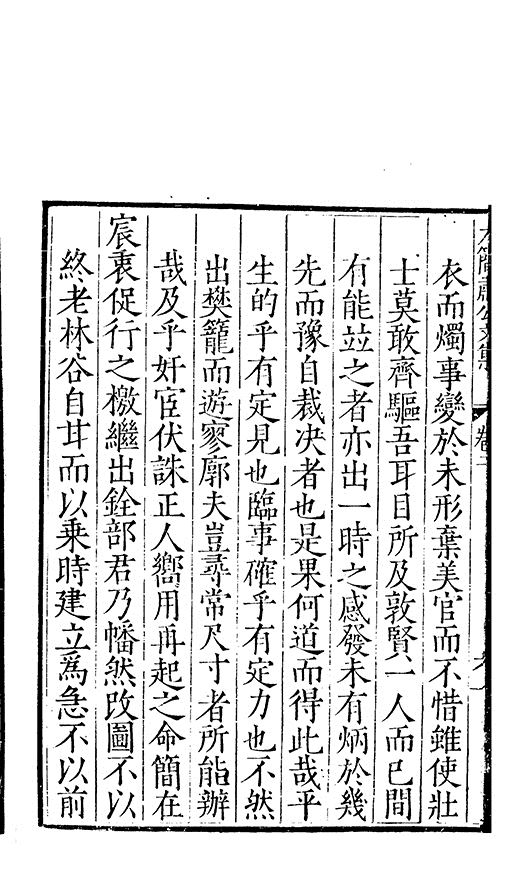 衣而燭事變於未形棄美官而不惜雖使壯
士莫敢齊驅吾耳目所及敦賢一人而已間
有能竝之者亦出一時之感發未有炳於幾
先而豫自裁决者也是果何道而得此哉平
生的乎有定見也臨事確乎有定力也不然
出樊籠而遊寥廓夫豈尋常尺寸者所能辦
哉及乎奸宦伏誅正人嚮用再起之命簡在
宸衷促行之檄繼出銓部君乃幡然改圖不以
終老林谷自甘而以乗時建立爲急不以前